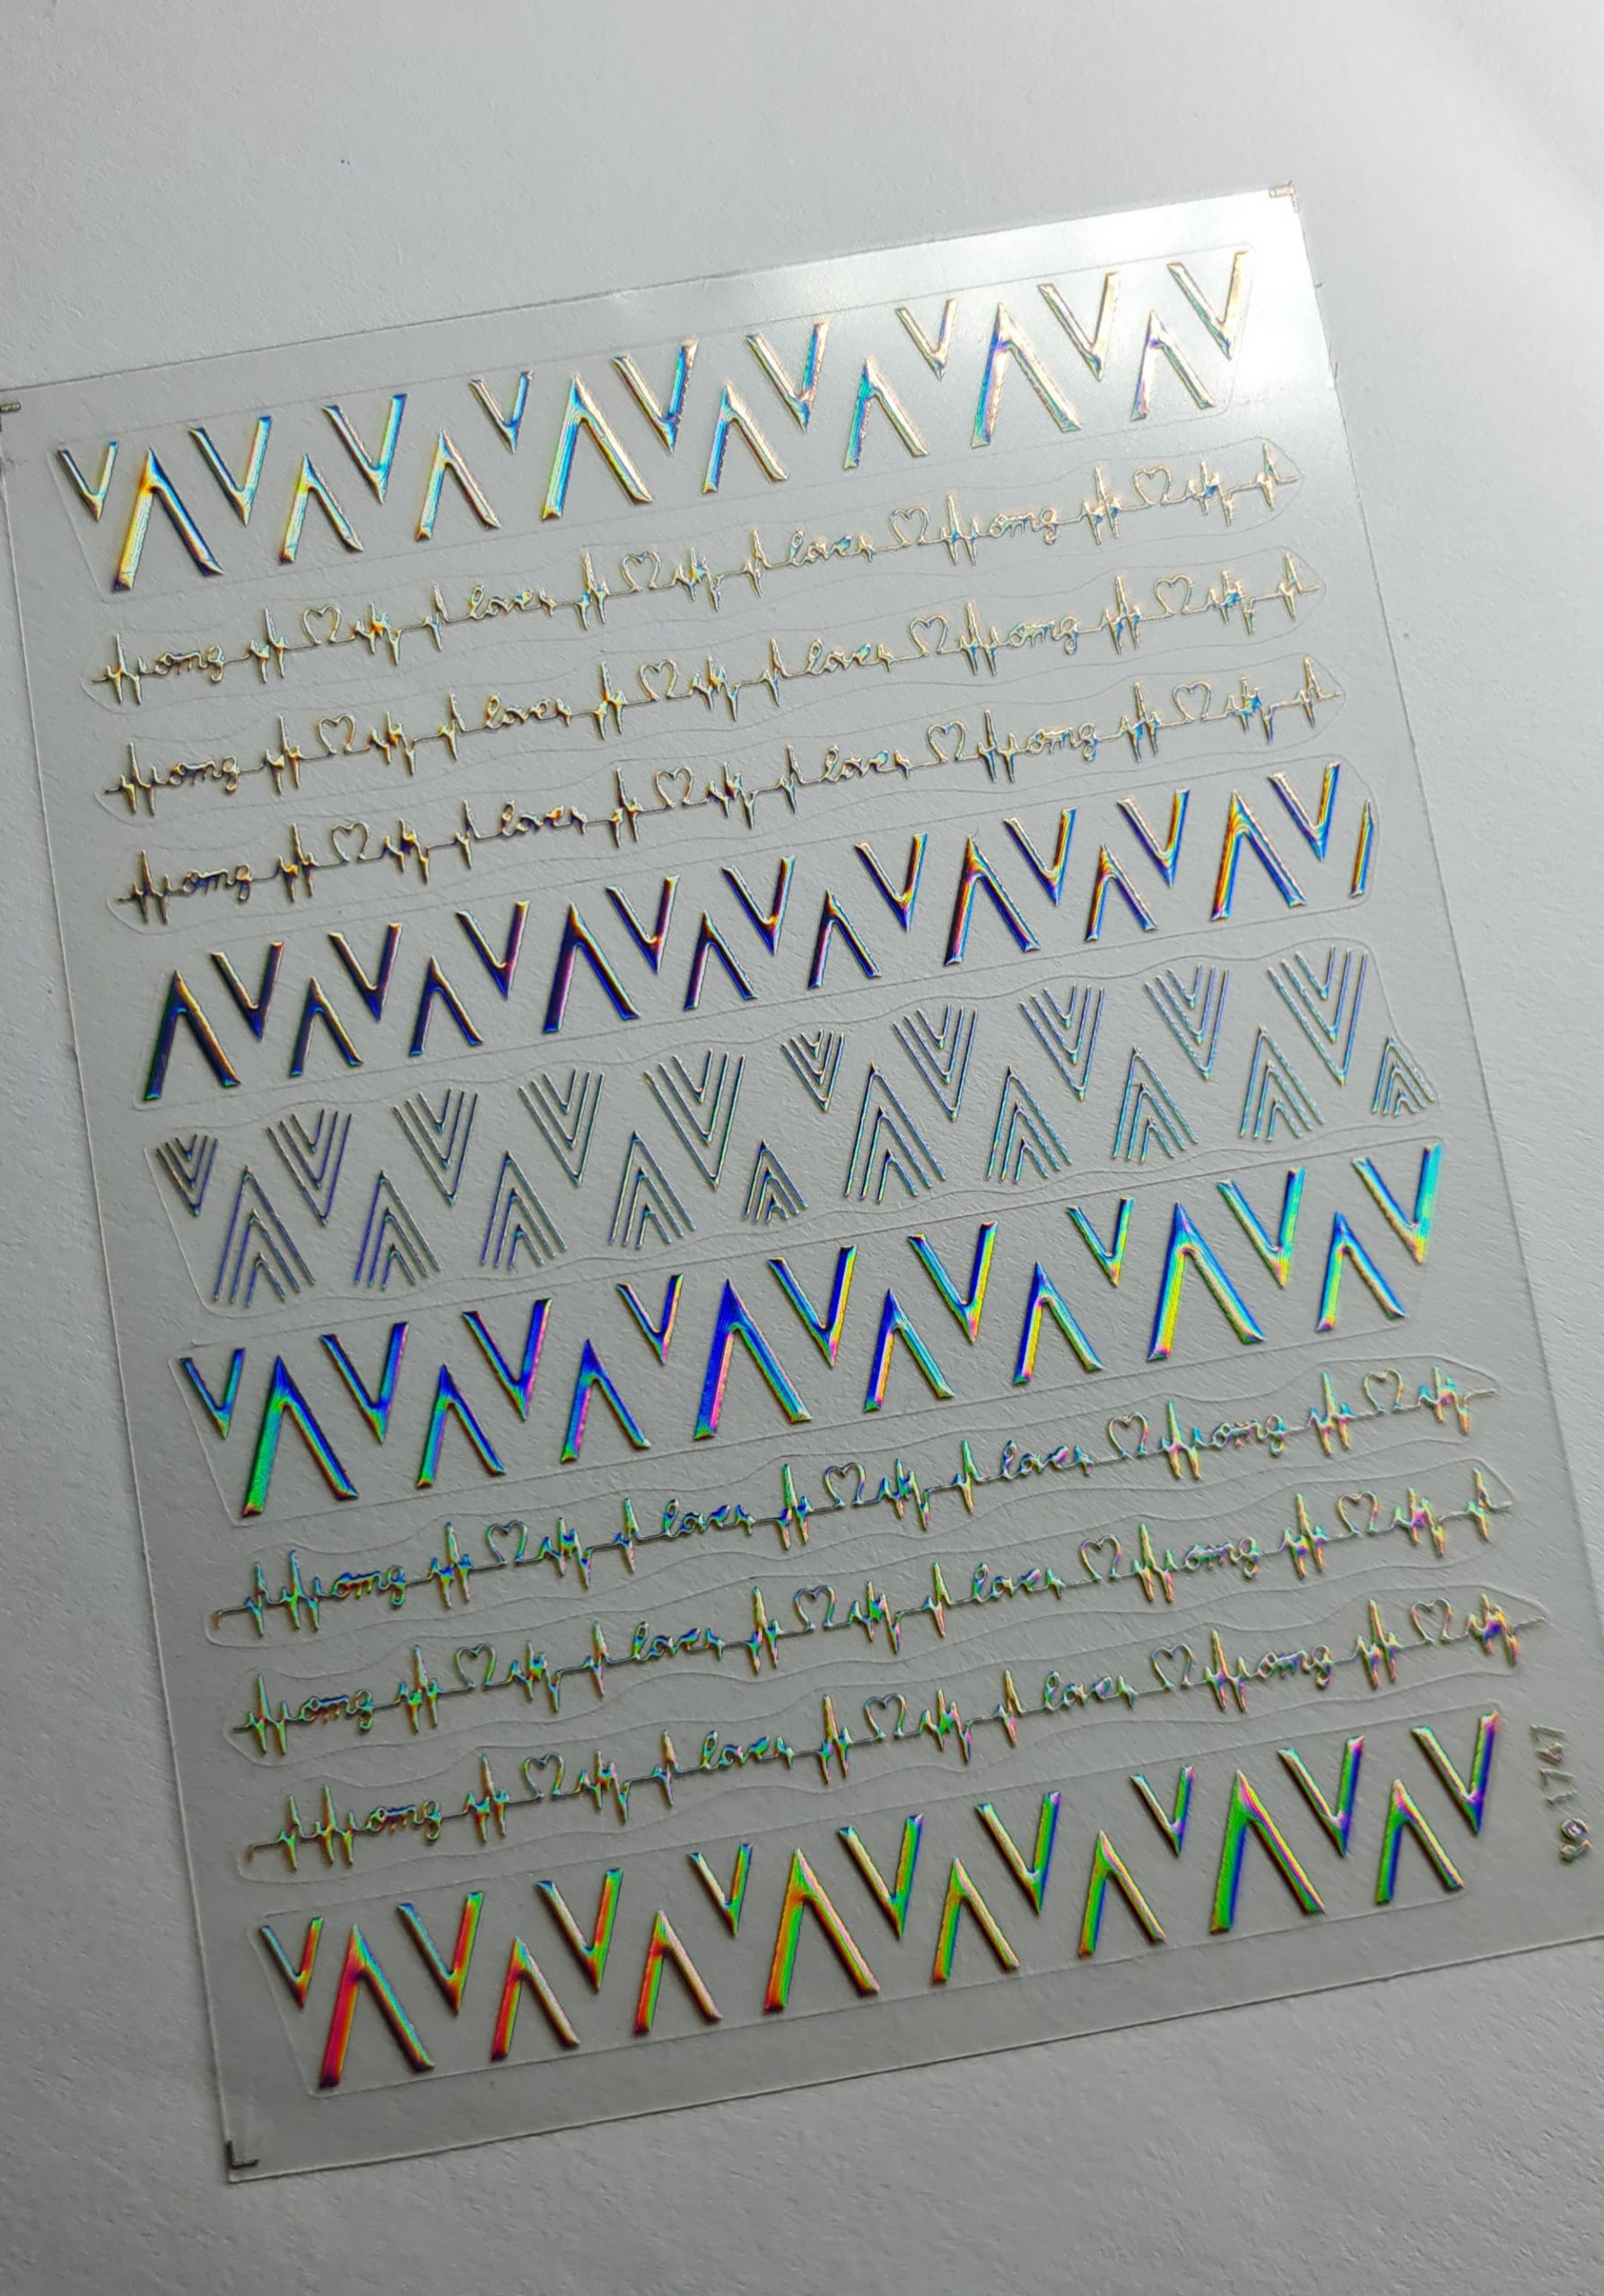 omg love love omg
omg love love omg
omg love love omg
omg love love omg
omg love love omg
omg love love omg